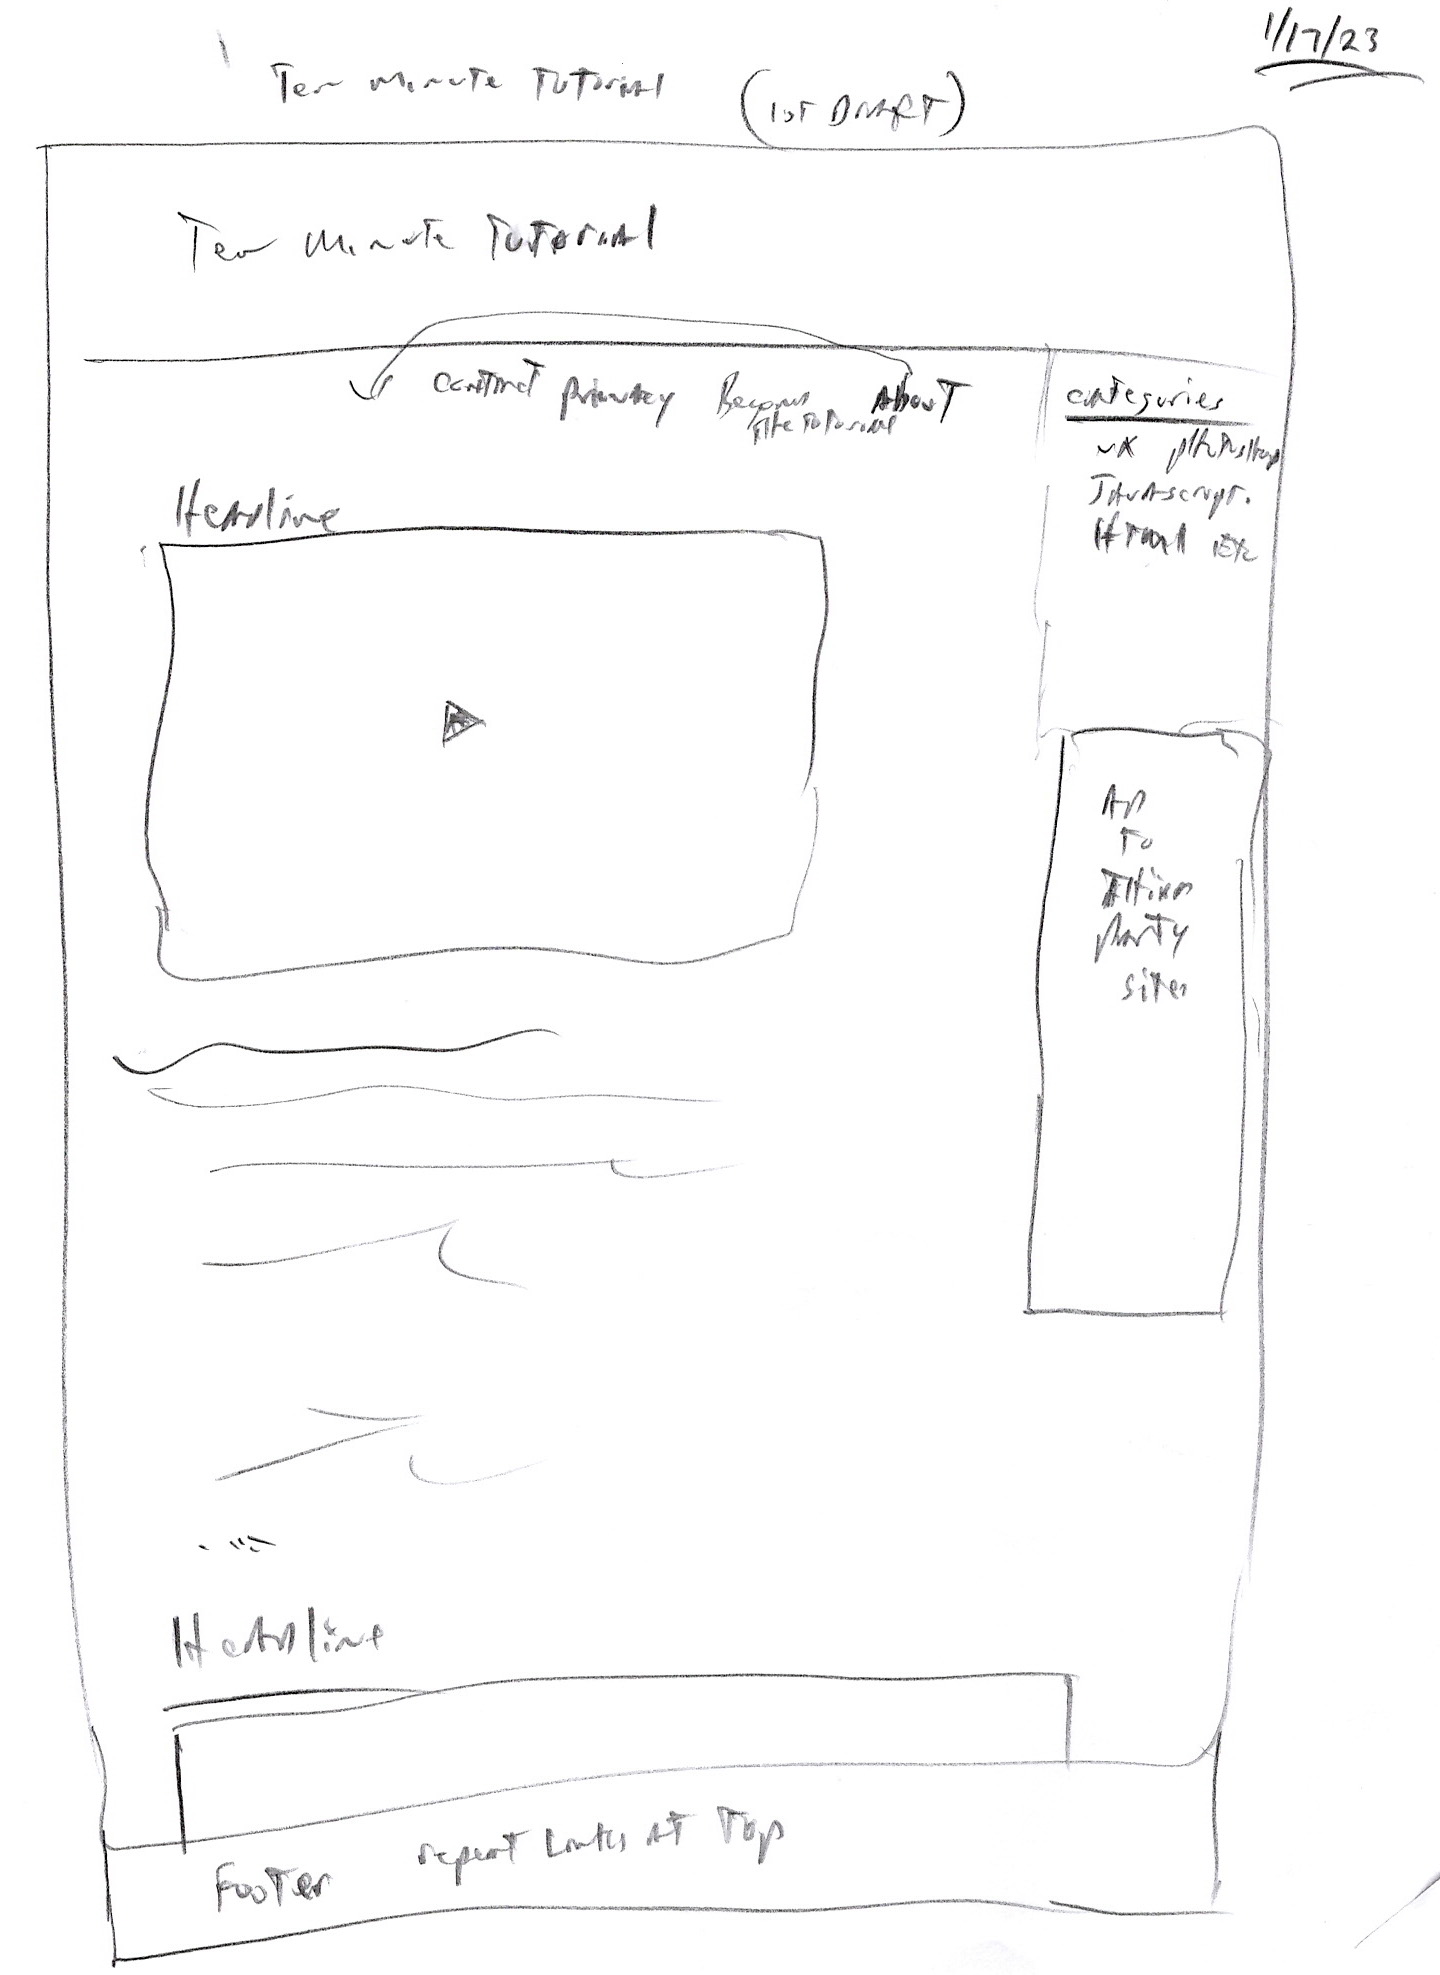 1/17/23
Ten Minute Tutorial (1st Draft)
Ten Minute Tutorial
contact privacy Become About
categories
the tutorial
UX photoshop
Javascript.
Html Etc
Headline
AD
To
Third
party
sites
Headline
Footer repeat Links at Top